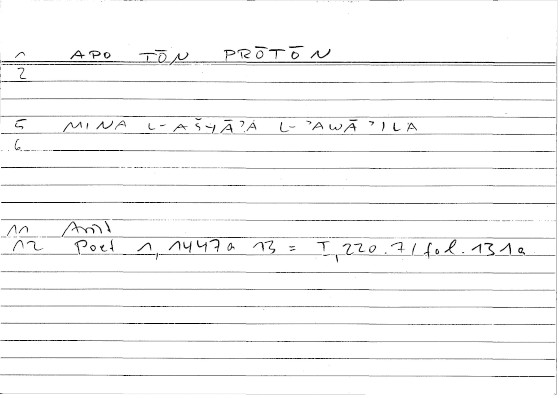 1 APO TŌN PRŌTŌN
2
5 MINA L-AŠYĀʾA L-ʾAWĀʾILA
6
11 Arist
12 Poet 1, 1447a 13 = I, 220.7/fol. 131a